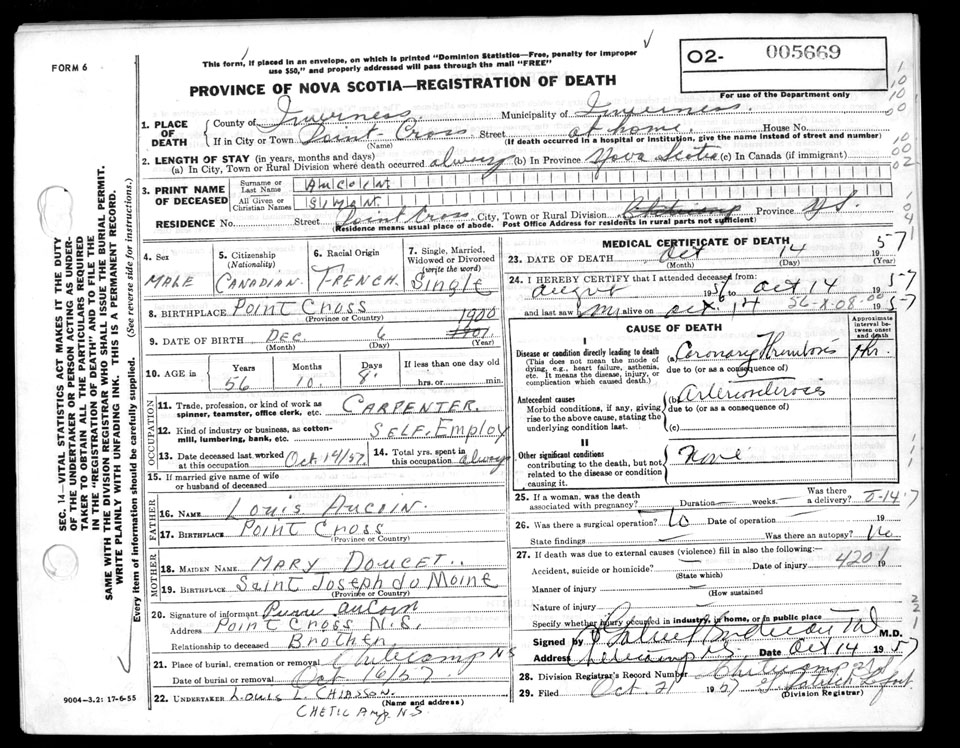 FORM 6
This form, if placed in an envelope, on which is printed "Dominion Statistics—Free, penalty for improper
use $50," and properly addressed will pass through the mail "FREE"
PROVINCE OF NOVA SCOTIA—REGISTRATION OF DEATH
O2- 005669
For use of the Department only
1. PLACE OF DEATH
County of Inverness Municipality of Inverness.
If in City or Town Point-Cross Street at home. House No.
(Name) (If death occurred in a hospital or institution, give the name instead of street and number)
2. LENGTH OF STAY (in years, months and days)
(a) In City, Town or Rural Division where death occurred always (b) In Province Nova Scotia (c) In Canada (if immigrant)
3. PRINT NAME OF DECEASED
Surname or Last Name AUCOIN
All Given or Christian Names
RESIDENCE No. Street Point Cross City, Town or Rural Division Province N.S.
(Residence means usual place of abode. Post Office Address for residents in rural parts not sufficient)
4. Sex
MALE
5. Citizenship
(Nationality)
CANADIAN.
6. Racial Origin
FRENCH
7. Single, Married, Widowed or Divorced
(write the word)
Single
8. BIRTHPLACE POINT CROSS
(Province or Country)
1900
9. DATE OF BIRTH DEC 6
(Month) (Day) (Year)
10. AGE in
Years Months Days If less than one day old
56 10. 8 hrs. or min.
OCCUPATION
11. Trade, profession, or kind of work as spinner, teamster, office clerk, etc. CARPENTER.
12. Kind of industry or business, as cotton-mill, lumbering, bank, etc. SELF. Employ
13. Date deceased last worked at this occupation Oct 14/57.
14. Total yrs. spent in this occupation always
15. If married give name of wife or husband of deceased
FATHER
16. NAME LOUIS AUCOIN.
17. BIRTHPLACE POINT CROSS
(Province or Country)
MOTHER
18. MAIDEN NAME MARY DOUCET..
19. BIRTHPLACE Saint Joseph do Moine
(Province or Country)
20. Signature of informant Aucoin
Address POINT CROSS N.S.
Relationship to deceased Brother
21. Place of burial, cremation or removal Cheticamp NS
Date of burial or removal Oct 16/57
22. UNDERTAKER Louis L. CHIASSON.
(Name and address)
CHETICAMP. N.S
MEDICAL CERTIFICATE OF DEATH
23. DATE OF DEATH Oct 14 1957
(Month) (Day) (Year)
24. I HEREBY CERTIFY that I attended deceased from:
August 1956 to Oct 14 1957
and last saw him alive on Oct. 14 1957
56-X-08-00
CAUSE OF DEATH
Approximate interval between onset and death
I
Disease or condition directly leading to death (a) Coronary Thrombosis Hr.
(This does not mean the mode of dying, e.g., heart failure, asthenia, etc. It means the disease, injury, or complication which caused death.)
due to (or as a consequence of)
Antecedent causes (b) Arteriosclerosis
Morbid conditions, if any, giving rise to the above cause, stating the underlying condition last.
due to (or as a consequence of)
(c)
II
Other significant conditions None
contributing to the death, but not related to the disease or condition causing it.
25. If a woman, was the death associated with pregnancy? Duration weeks. Was there a delivery?
26. Was there a surgical operation? No Date of operation 19
State findings Was there an autopsy? No
27. If death was due to external causes (violence) fill in also the following:—
Accident, suicide or homicide? Date of injury 19
(State which)
4201
Manner of injury
(How sustained)
Nature of injury
Specify whether injury occurred in industry, in home, or in public place
Signed by M.D.
Address Cheticamp NS Date Oct 14 1957
28. Division Registrar's Record Number
29. Filed Oct 21 1957
(Division Registrar)
SEC. 14—VITAL STATISTICS ACT MAKES IT THE DUTY
OF THE UNDERTAKER OR PERSON ACTING AS UNDER-
TAKER TO OBTAIN ALL THE PARTICULARS REQUIRED
IN THE "REGISTRATION OF DEATH" AND TO FILE THE
SAME WITH THE DIVISION REGISTRAR WHO SHALL ISSUE THE BURIAL PERMIT.
WRITE PLAINLY WITH UNFADING INK. THIS IS A PERMANENT RECORD.
Every item of information should be carefully supplied. (See reverse side for instructions.)
9004—3.21 17-6-55